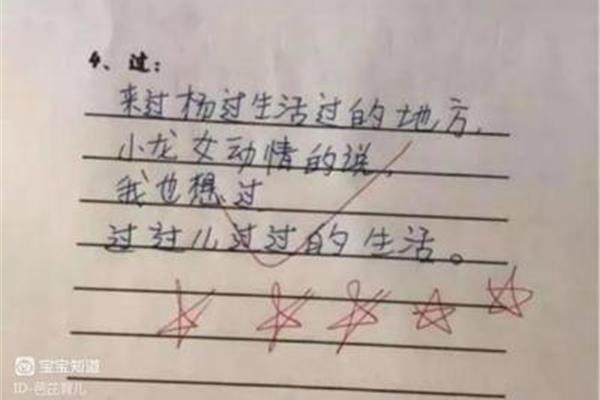 4、过：
来过杨过生活过的地方，
小龙女动情的说，
我也想过
过过儿过过的生活。
宝宝知道
ID-芭芷育儿